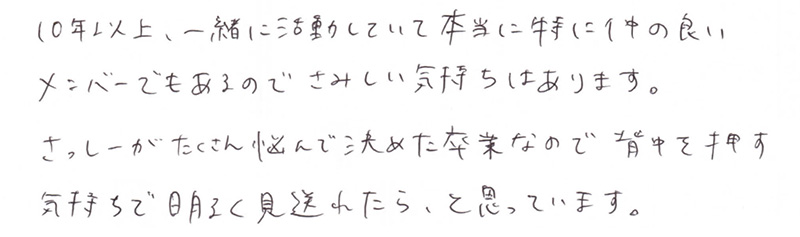 10年以上、一緒に活動していて本当に特に仲の良い
メンバーでもあるのでさみしい気持ちはあります。
さっしーがたくさん悩んで決めた卒業なので背中を押す
気持ちで明るく見送れたら、と思っています。